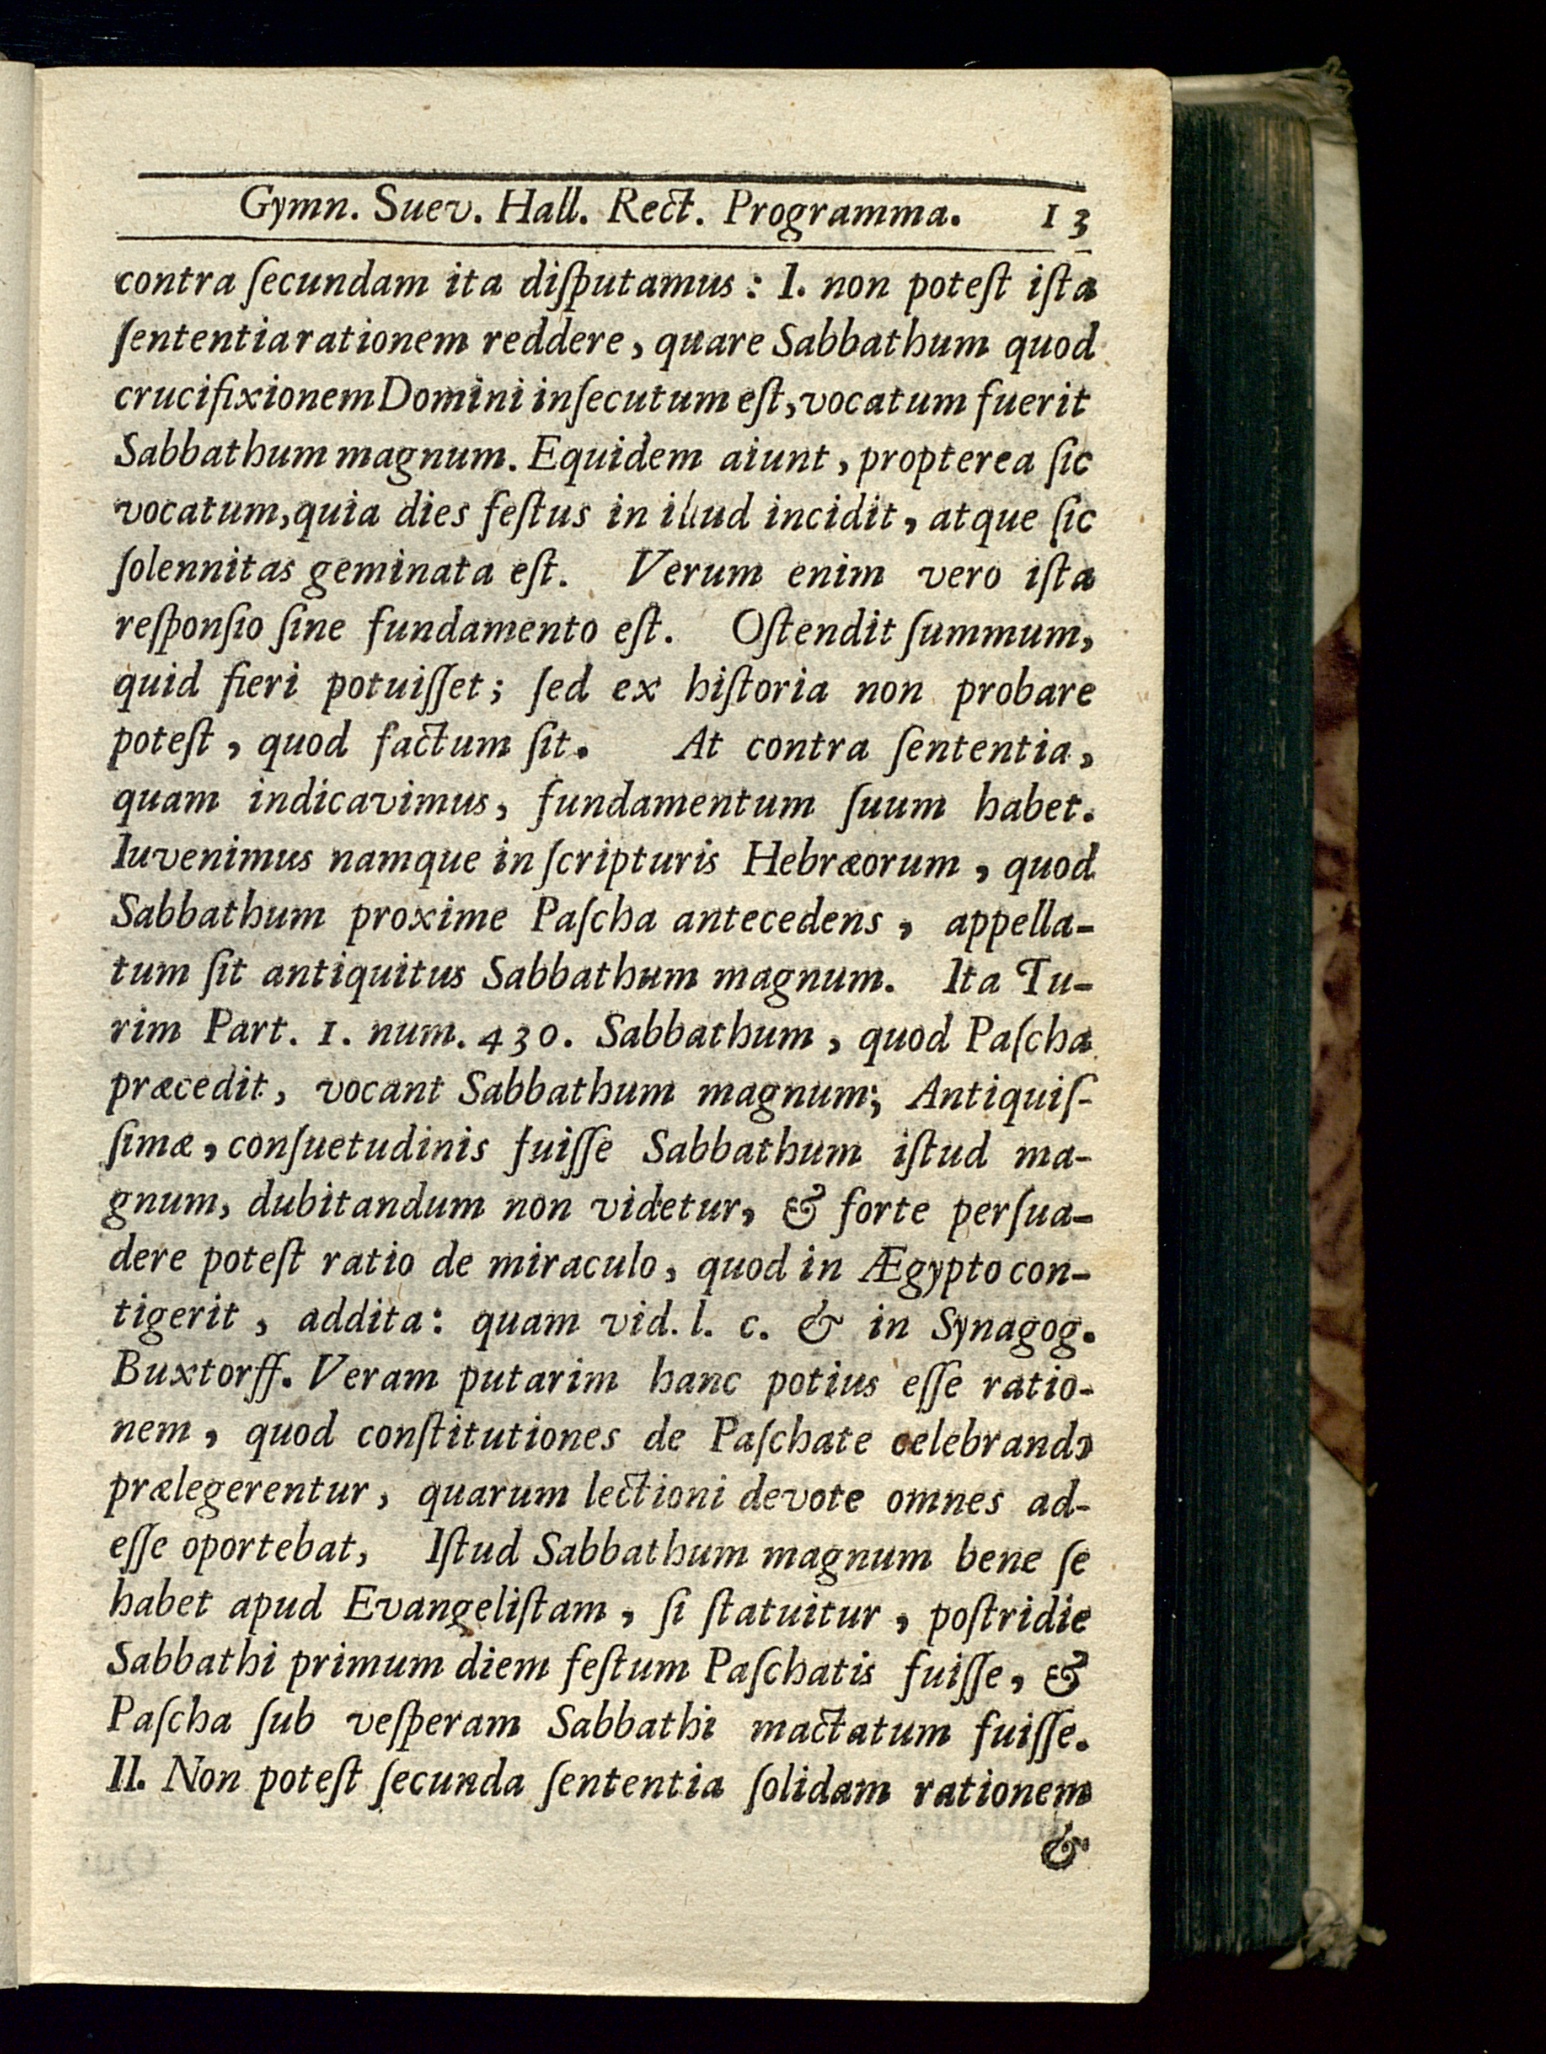 Gymn. Suev. Hall. Rect. Programma. 13
contra ſecundam ita diſputamus: I. non poteſt iſta
ſententia rationem reddere, quare Sabbathum quod
crucifixionem Domini inſecutum eſt, vocatum fuerit
Sabbathum magnum. Equidem aiunt, propterea ſic
vocatum, quia dies feſtus in illud incidit, atque ſic
ſolennitas geminata eſt. Verum enim vero iſta
reſponſio ſine fundamento eſt. Oſtendit ſummum,
quid fieri potuiſſet; ſed ex hiſtoria non probare
poteſt, quod factum ſit. At contra ſententia,
quam indicavimus, fundamentum ſuum habet.
Iuvenimus namque in ſcripturis Hebræorum, quod
Sabbathum proxime Paſcha antecedens, appella-
tum ſit antiquitus Sabbathum magnum. Ita Tu-
rim Part. 1. num. 430. Sabbathum, quod Paſcha
præcedit, vocant Sabbathum magnum; Antiquiſ-
ſimæ, conſuetudinis fuiſſe Sabbathum iſtud ma-
gnum, dubitandum non videtur, & forte perſua-
dere poteſt ratio de miraculo, quod in Ægypto con-
tigerit, addita: quam vid. l. c. & in Synagog.
Buxtorff. Veram putarim hanc potius eſſe ratio-
nem, quod conſtitutiones de Paſchate celebrando
prælegerentur, quarum lectioni devote omnes ad-
eſſe oportebat, Iſtud Sabbathum magnum bene ſe
habet apud Evangeliſtam, ſi ſtatuitur, poſtridie
Sabbathi primum diem feſtum Paſchatis fuiſſe, &
Paſcha ſub veſperam Sabbathi mactatum fuiſſe.
II. Non poteſt ſecunda ſententia ſolidam rationem
&